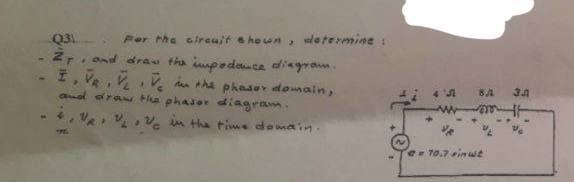 Q3\ For the circuit shown, determine :
- Z̄T, and draw the impedance diagram.
- Ī, V̄R, V̄L, V̄c in the phasor domain,
and draw the phasor diagram.
- i, vR, vL, vc in the time domain.
i 4 Ω 8 Ω 3 Ω
+ vR - + vL - + vc -
+ ~ - e = 70.7 sin wt